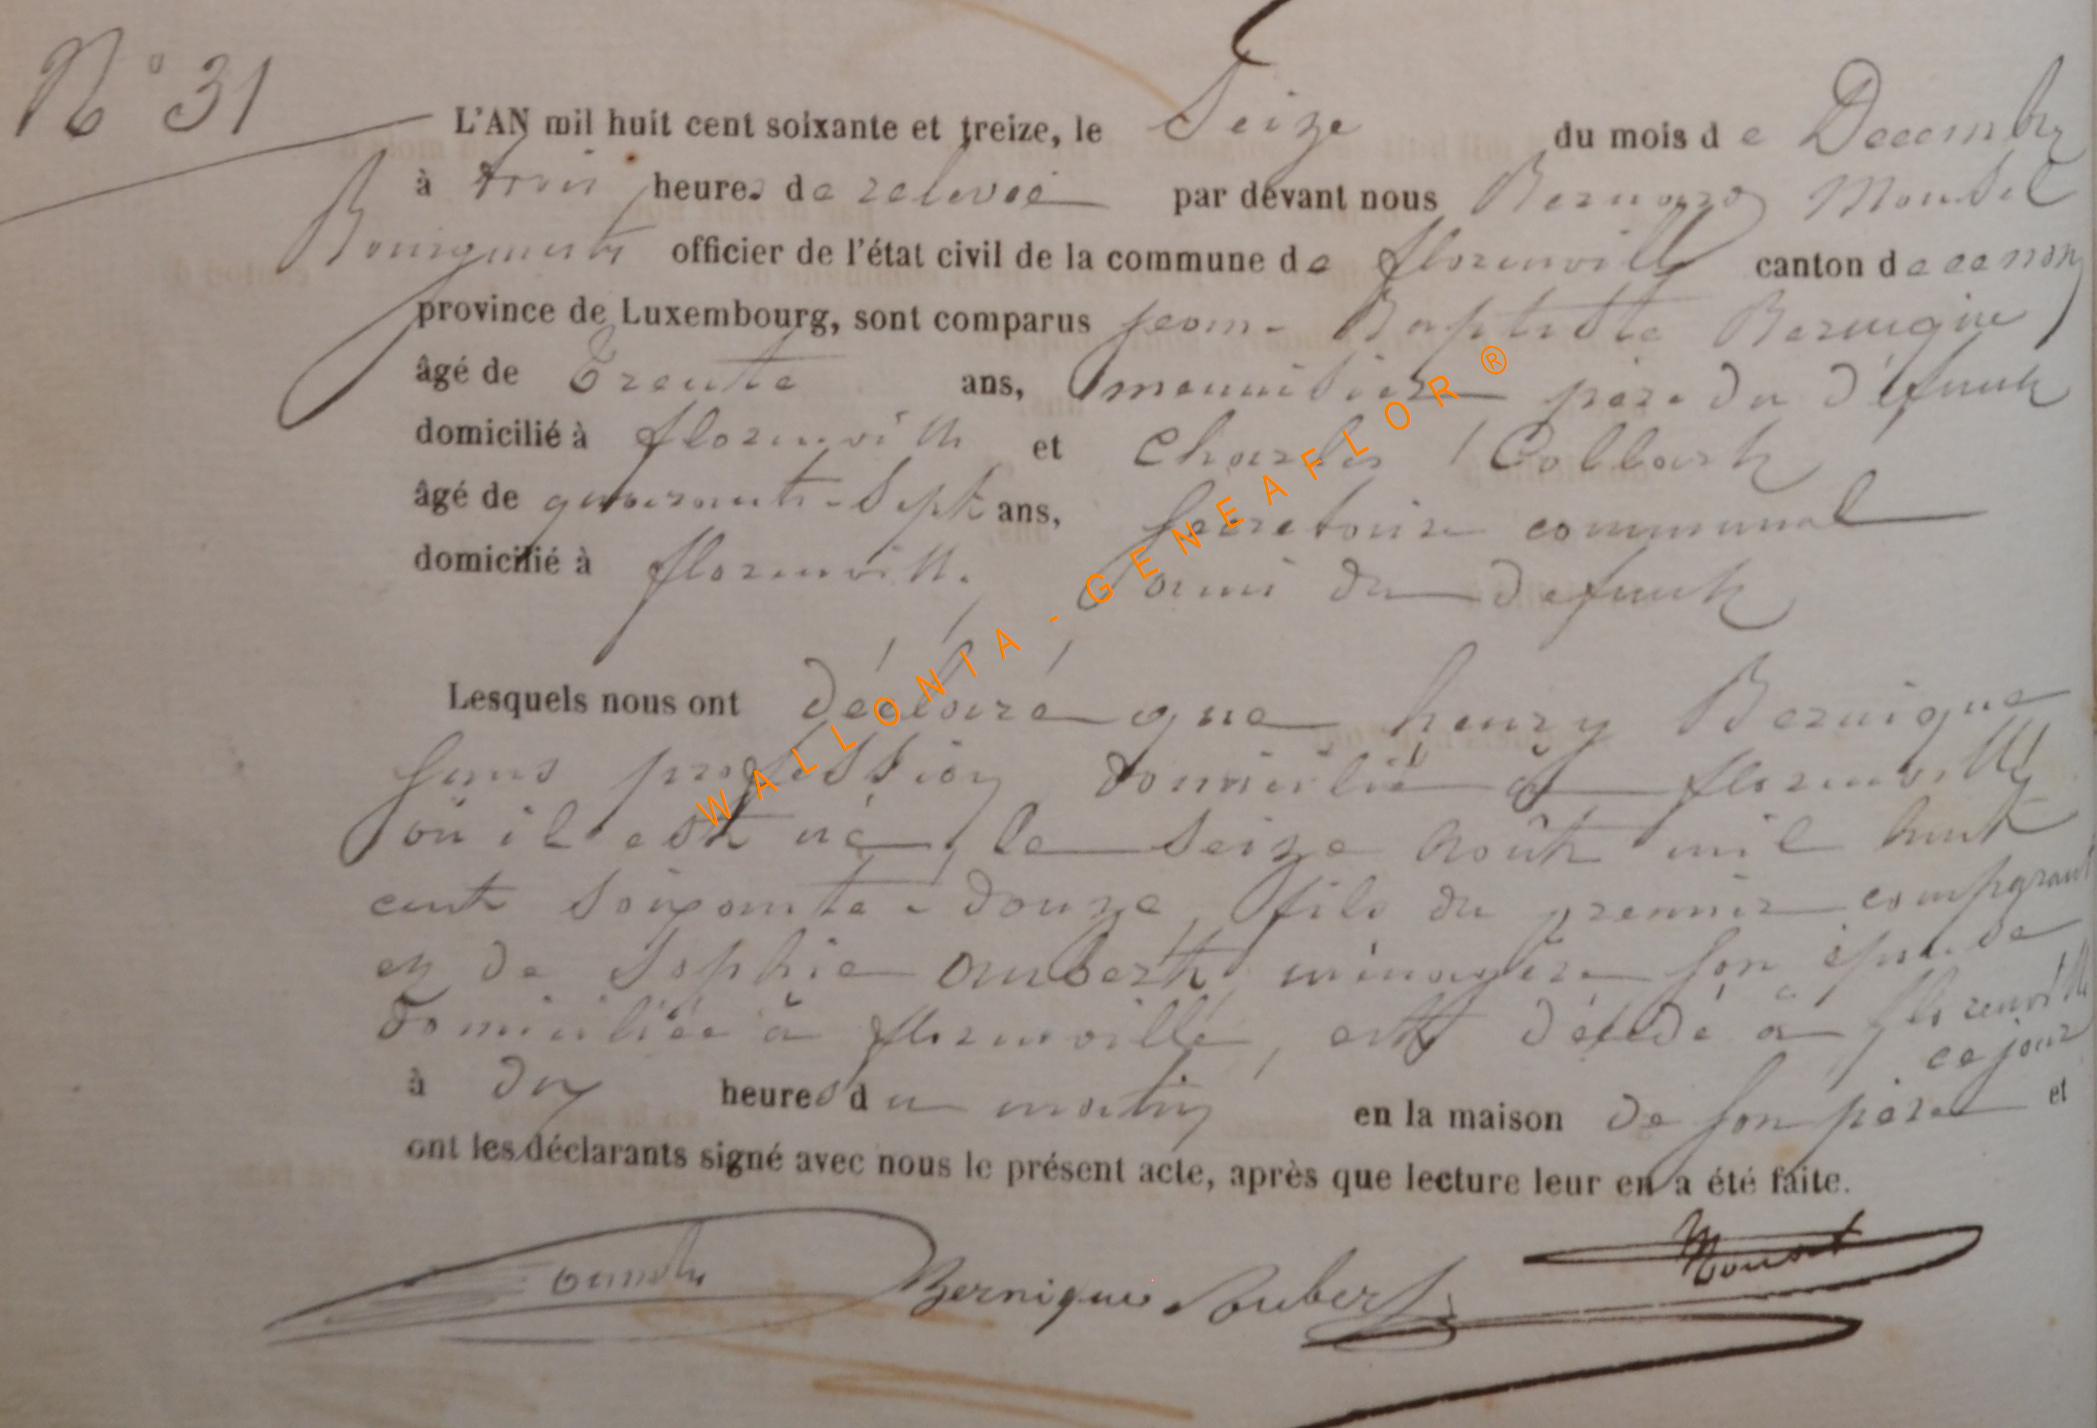 N° 31
L'AN mil huit cent soixante et treize, le Seize du mois de Decembre
à trois heures de relevée par devant nous Bernard Mousel
Bourgmestre officier de l'état civil de la commune de florenville canton de ce nom
province de Luxembourg, sont comparus jean-Baptiste Bernique
âgé de Trente ans, menuisier père du défunt
domicilié à florenville et Charles Collart
âgé de quarante-Sept ans, Secretaire communal
domicilié à florenville. ami du defunt
Lesquels nous ont déclaré que henry Bernique
Sans profession domicilié à florenville
où il est né, le Seize Août mil huit
cent Soixante-douze, fils du premier comparant
et de Sophie Aubert ménagère Son épouse
domiciliée à florenville, est décédé à florenville
ce jour
à dix heures du matin en la maison de Son père et
ont les déclarants signé avec nous le présent acte, après que lecture leur en a été faite.
Bernique Aubert
WALLONIA - GENEAFLOR ®